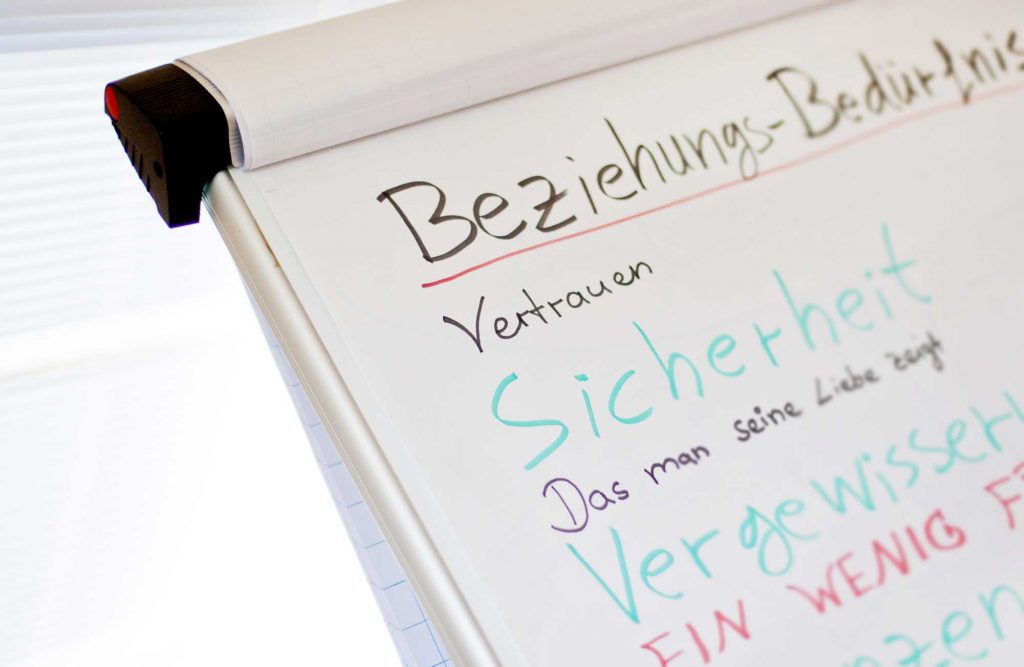 Beziehungs-Bedürfnis
Vertrauen
Sicherheit
Das man seine Liebe zeigt
Vergewisser
EIN WENIG F
zen